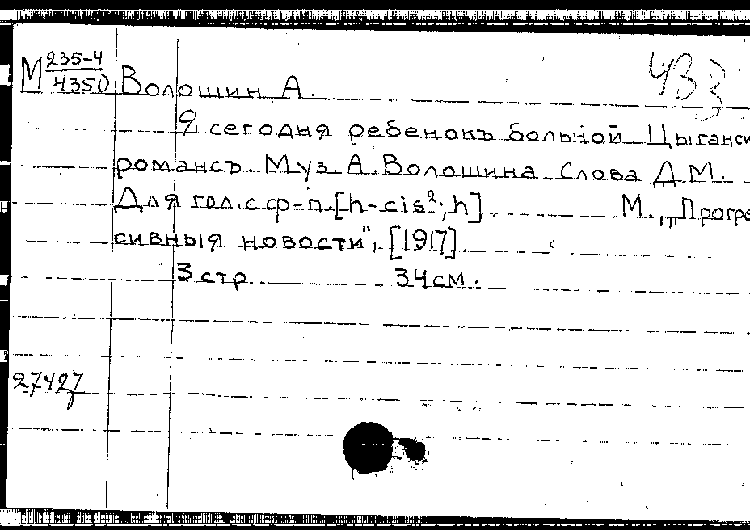 М 235-4
4350
Волошин А.
433
Я сегодня ребенокъ больной Цыганс
романсъ Муз А. Волошина Слова Д.М.
Для гол. с ф-п. [h-cis²; h] М., „Прогре
сивныя новости", [1917]
3 стр. 34 см.
27427